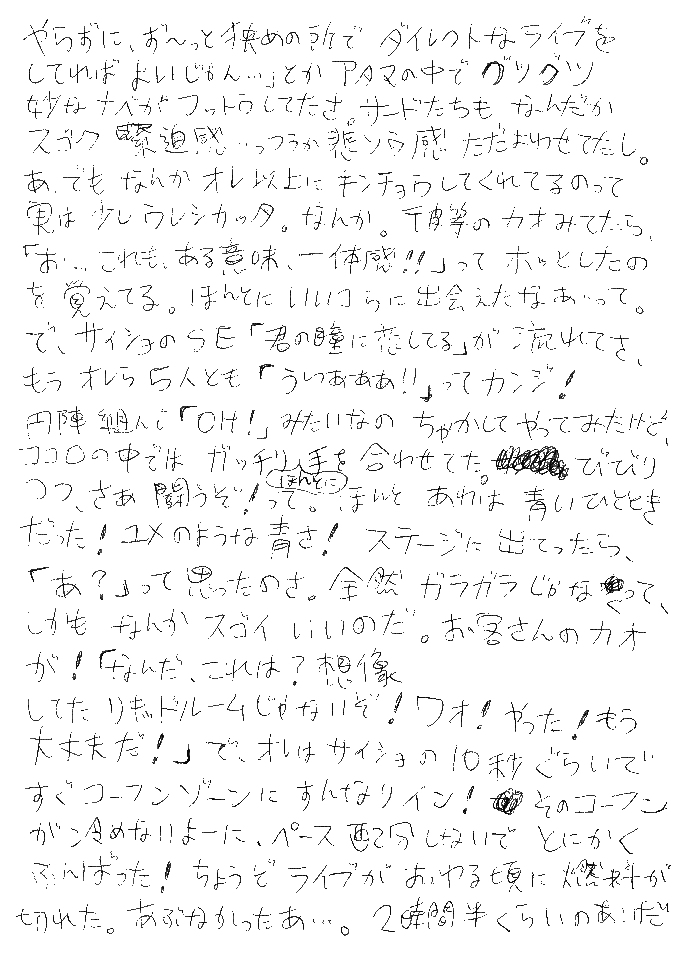 やらずに、ず〜っと狭めの所で ダイレクトなライブを
してれば よいじゃん…」とか アタマの中で グツグツ
妙なナベがフットウしてたさ。サードたちも なーんだか
スゴク 緊迫感…っつうか悲ソウ感 ただよわせてたし。
あ、でも なんか オレ以上に キンチョウしてくれてるのって
実は 少し ウレシカッタ。なんか。千皮等の カオみてたら、
「お…これも、ある意味、一体感!!」って ホッとしたの
を 覚えてる。ほんとに いいコらに出会えたなあ…って。
で、サイショのSE「君の瞳に恋してる」が 流れてさ、
もう オレら 5人とも「うつおあああ!!」って カンジ!
円陣 組んで「OK!」みたいなの ちゃかして やってみたけど、
ココロの中では ガッチリ手を合わせてた。びびり
つつ、さあ 闘うぞ!って。ほんとに ほんと あれは 青いひととき
だった! ユメのような青さ! ステージに 出てったら、
「あ?」って思ったのさ。全然 ガラガラじゃなくって、
しかも なんか スゴイ いいのだ。お客さんの カオ
が!「なんだ、これは? 想像
してた リキッドルームじゃないぞ! ワオ! やった! もう
大丈夫だ!」で、オレは サイショの 10秒ぐらいで
すぐ コーフンゾーンに すんなり イン! そのコーフン
が 冷めないよーに、ペース配分しないで とにかく
ふんばった! ちょうど ライブが おわる頃に 燃料が
切れた。あぶなかったあ…。2時間半くらいのあいだ